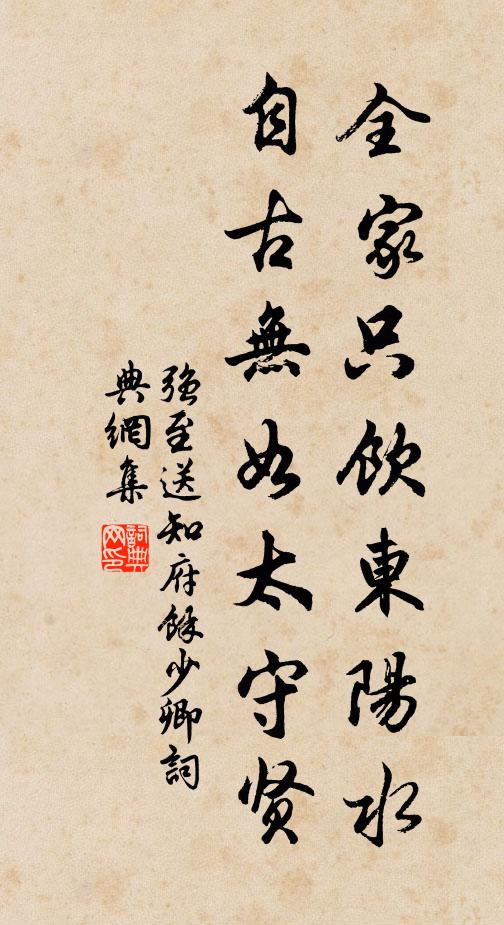 全家只飲東陽水
自古無如太守贤
強至送知府餘少卿詞
典網集
詞典
网印